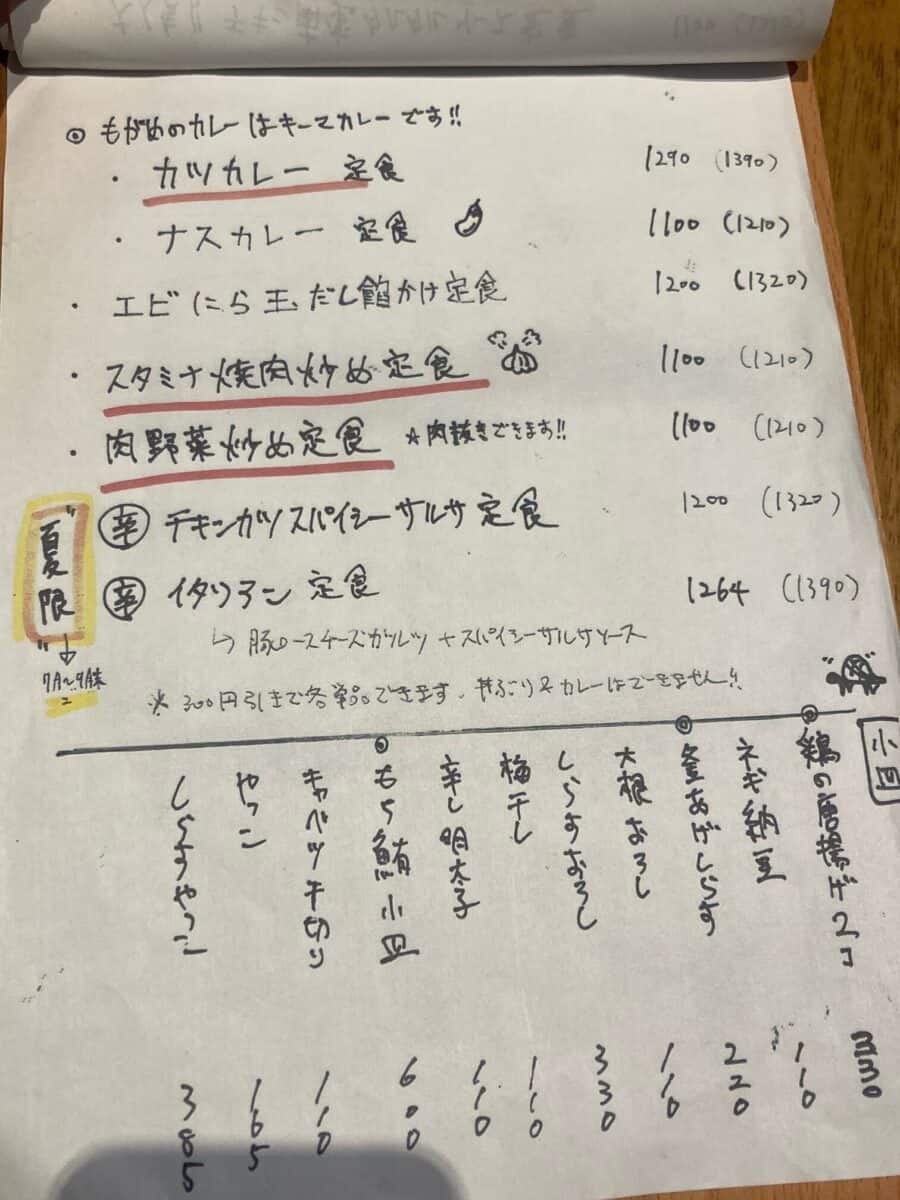 ◎ もがめのカレーはキーマカレーです!!
・ カツカレー 定食 1290 (1390)
・ ナスカレー 定食 1100 (1210)
・ エビにら玉だし餡かけ定食 1200 (1320)
・ スタミナ焼肉炒め定食 1100 (1210)
・ 肉野菜炒め定食 ☆肉抜きできます!! 1100 (1210)
"夏限"
7月〜9月末
辛 チキンカツスパイシーサルサ定食 1200 (1320)
辛 イタリアン 定食 1264 (1390)
↳ 豚ロースチーズカツレツ + スパイシーサルサソース
※ 300円引きで各単品できます. 丼ぶり&カレーはできません!!
小皿
◎ 鶏の唐揚げ2コ 330
ネギ納豆 110
◎ 釜あげしらす 220
大根おろし 110
しらすおろし 330
梅干し 110
辛し明太子 110
◎ もち鮪小皿 600
キャベツ千切り 110
やっこ 165
しらすやっこ 385